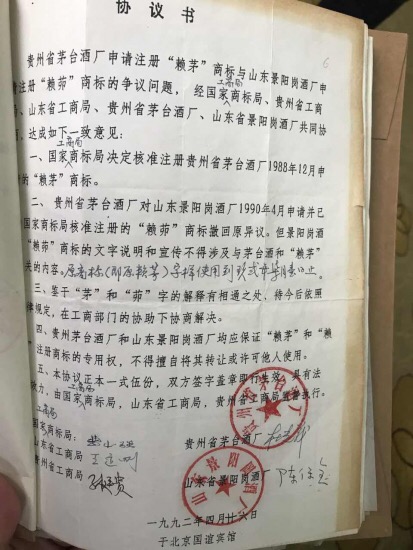 协议书
6
贵州省茅台酒厂申请注册“赖茅”商标与山东景阳岗酒厂申
请注册“赖茆”商标的争议问题，经国家工商局商标局、贵州省工商
局、山东省工商局、贵州省茅台酒厂、山东省景阳岗酒厂共同协
，达成如下一致意见：
一、国家工商局商标局决定核准注册贵州省茅台酒厂1988年12月申
的“赖茅”商标。
二、贵州省茅台酒厂对山东景阳岗酒厂1990年4月申请并已
国家商标局核准注册的“赖茆”商标撤回原异议。但景阳岗酒
“赖茆”商标的文字说明和宣传不得涉及与茅台酒和“赖茅”
关的内容。原商标(即原赖茅)字样使用到
止。
三、鉴于“茅”和“茆”字的解释有相通之处，待今后依照
律规定，在工商部门的协助下协商解决。
四、贵州茅台酒厂和山东景阳岗酒厂均应保证“赖茅”和“赖
”注册商标的专用权，不得擅自将其转让或许可他人使用。
五、本协议正本一式伍份，双方签字盖章即行生效，具有法
效力，由国家工商局商标局，山东省工商局，贵州省工商局监督执行。
国家工商局商标局：
山东省工商局
贵州省工商局
贵州省茅台酒厂
山东省景阳岗酒厂
一九九二年四月十六日
于北京国谊宾馆